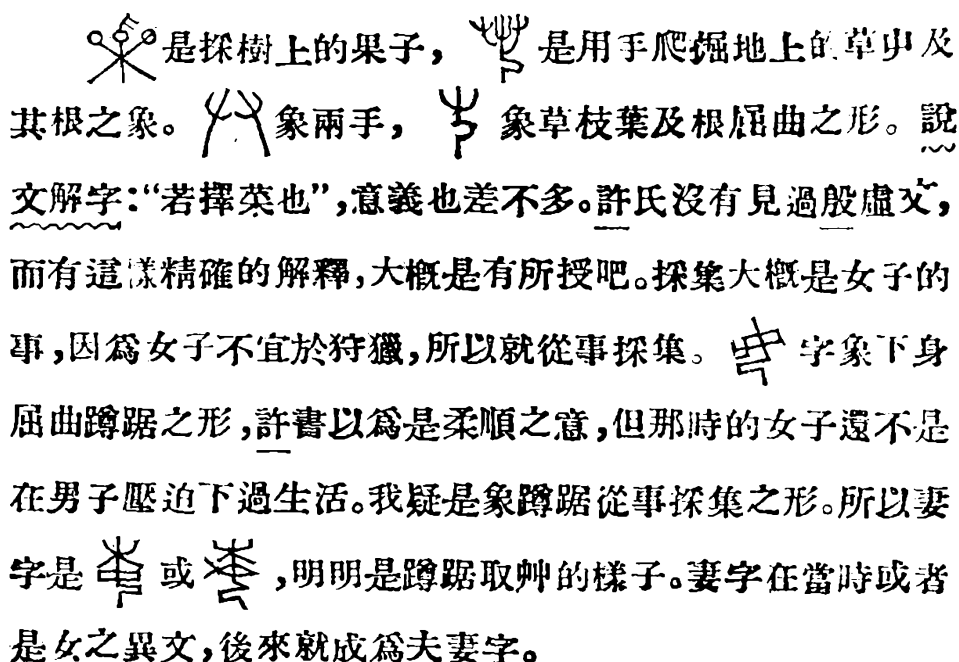 是採樹上的果子，是用手爬掘地上的草屮及
其根之象。象兩手，象草枝葉及根屈曲之形。說
文解字：“若擇菜也”，意義也差不多。許氏沒有見過殷虛文，
而有這樣精確的解釋，大概是有所授吧。採集大概是女子的
事，因爲女子不宜於狩獵，所以就從事採集。字象下身
屈曲蹲踞之形，許書以爲是柔順之意，但那時的女子還不是
在男子壓迫下過生活。我疑是象蹲踞從事採集之形。所以妻
字是或，明明是蹲踞取艸的樣子。妻字在當時或者
是女之異文，後來就成爲夫妻字。